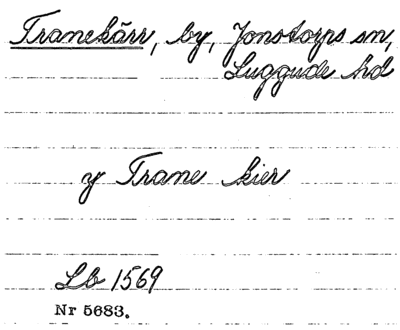 Tranekärr, by, Jonstorps sn,
Luggude hd
y Trane kier
Lb 1569
Nr 5683.